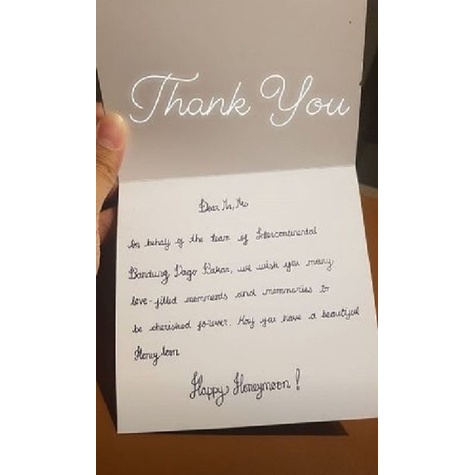 Thank You
Dear Mr, Mrs
On behalf of the team of Intercontinental
Bandung Dago Pakar, we wish you many
love-filled moments and memmories to
be cherished forever. May you have a beautiful
Honey Moon
Happy Honeymoon!